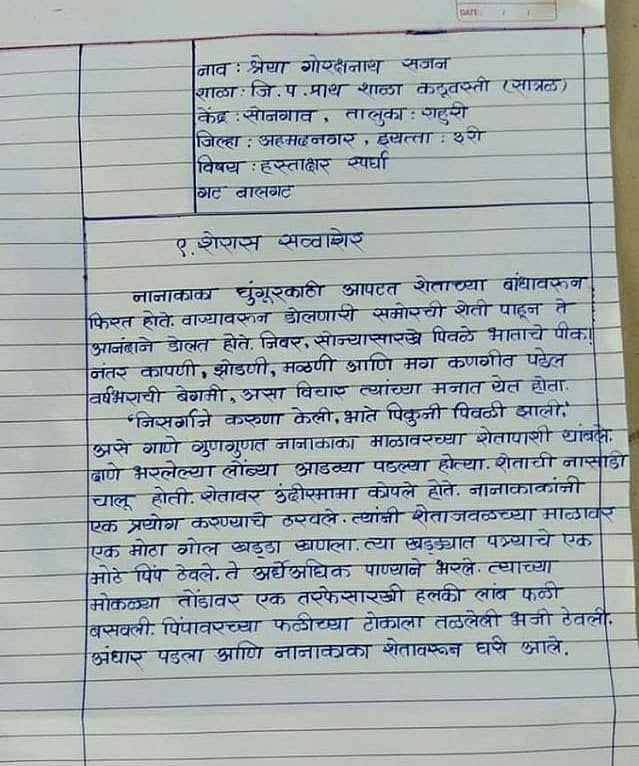 DATE: / /
नाव : श्रेया गोरक्षनाथ सजन
शाळा : जि. प. प्राथ शाळा कडूवस्ती (सात्रळ)
केंद्र : सोनगाव , तालुका : राहुरी
जिल्हा : अहमदनगर , इयत्ता : 3री
विषय : हस्ताक्षर स्पर्धा
गट बालगट
ए. शेरास सव्वाशेर
नानाकाका घुंगूरकाठी आपटत शेताच्या बांधावरून
फिरत होते. वाऱ्यावरून डोलणारी समोरची शेती पाहून ते
आनंदाने डोलत होते. जिवर, सोन्यासारखे पिवळे भाताचे पीक!
नंतर कापणी, झोडणी, मळणी आणि मग कणगीत पडेल
वर्षभराची बेगमी, असा विचार त्यांच्या मनात येत होता.
'निसर्गाने करुणा केली, भाते पिकुनी पिवळी झाली,'
असे गाणे गुणगुणत नानाकाका माळावरच्या शेतापाशी थांबले.
दाणे भरलेल्या लोंब्या आडव्या पडल्या होत्या. शेताची नासाडी
चालू होती. शेतावर उंदीरमामा कोपले होते. नानाकाकांनी
एक प्रयोग करण्याचे ठरवले. त्यांनी शेताजवळच्या माळावर
एक मोठा गोल खड्डा खणला. त्या खड्ड्यात पत्र्याचे एक
मोठे पिंप ठेवले. ते अर्धेअधिक पाण्याने भरले. त्याच्या
मोकळ्या तोंडावर एक तरफेसारखी हलकी लांब फळी
बसवली. पिंपावरच्या फळीच्या टोकाला तळलेली भजी ठेवली.
अंधार पडला आणि नानाकाका शेतावरून घरी आले.